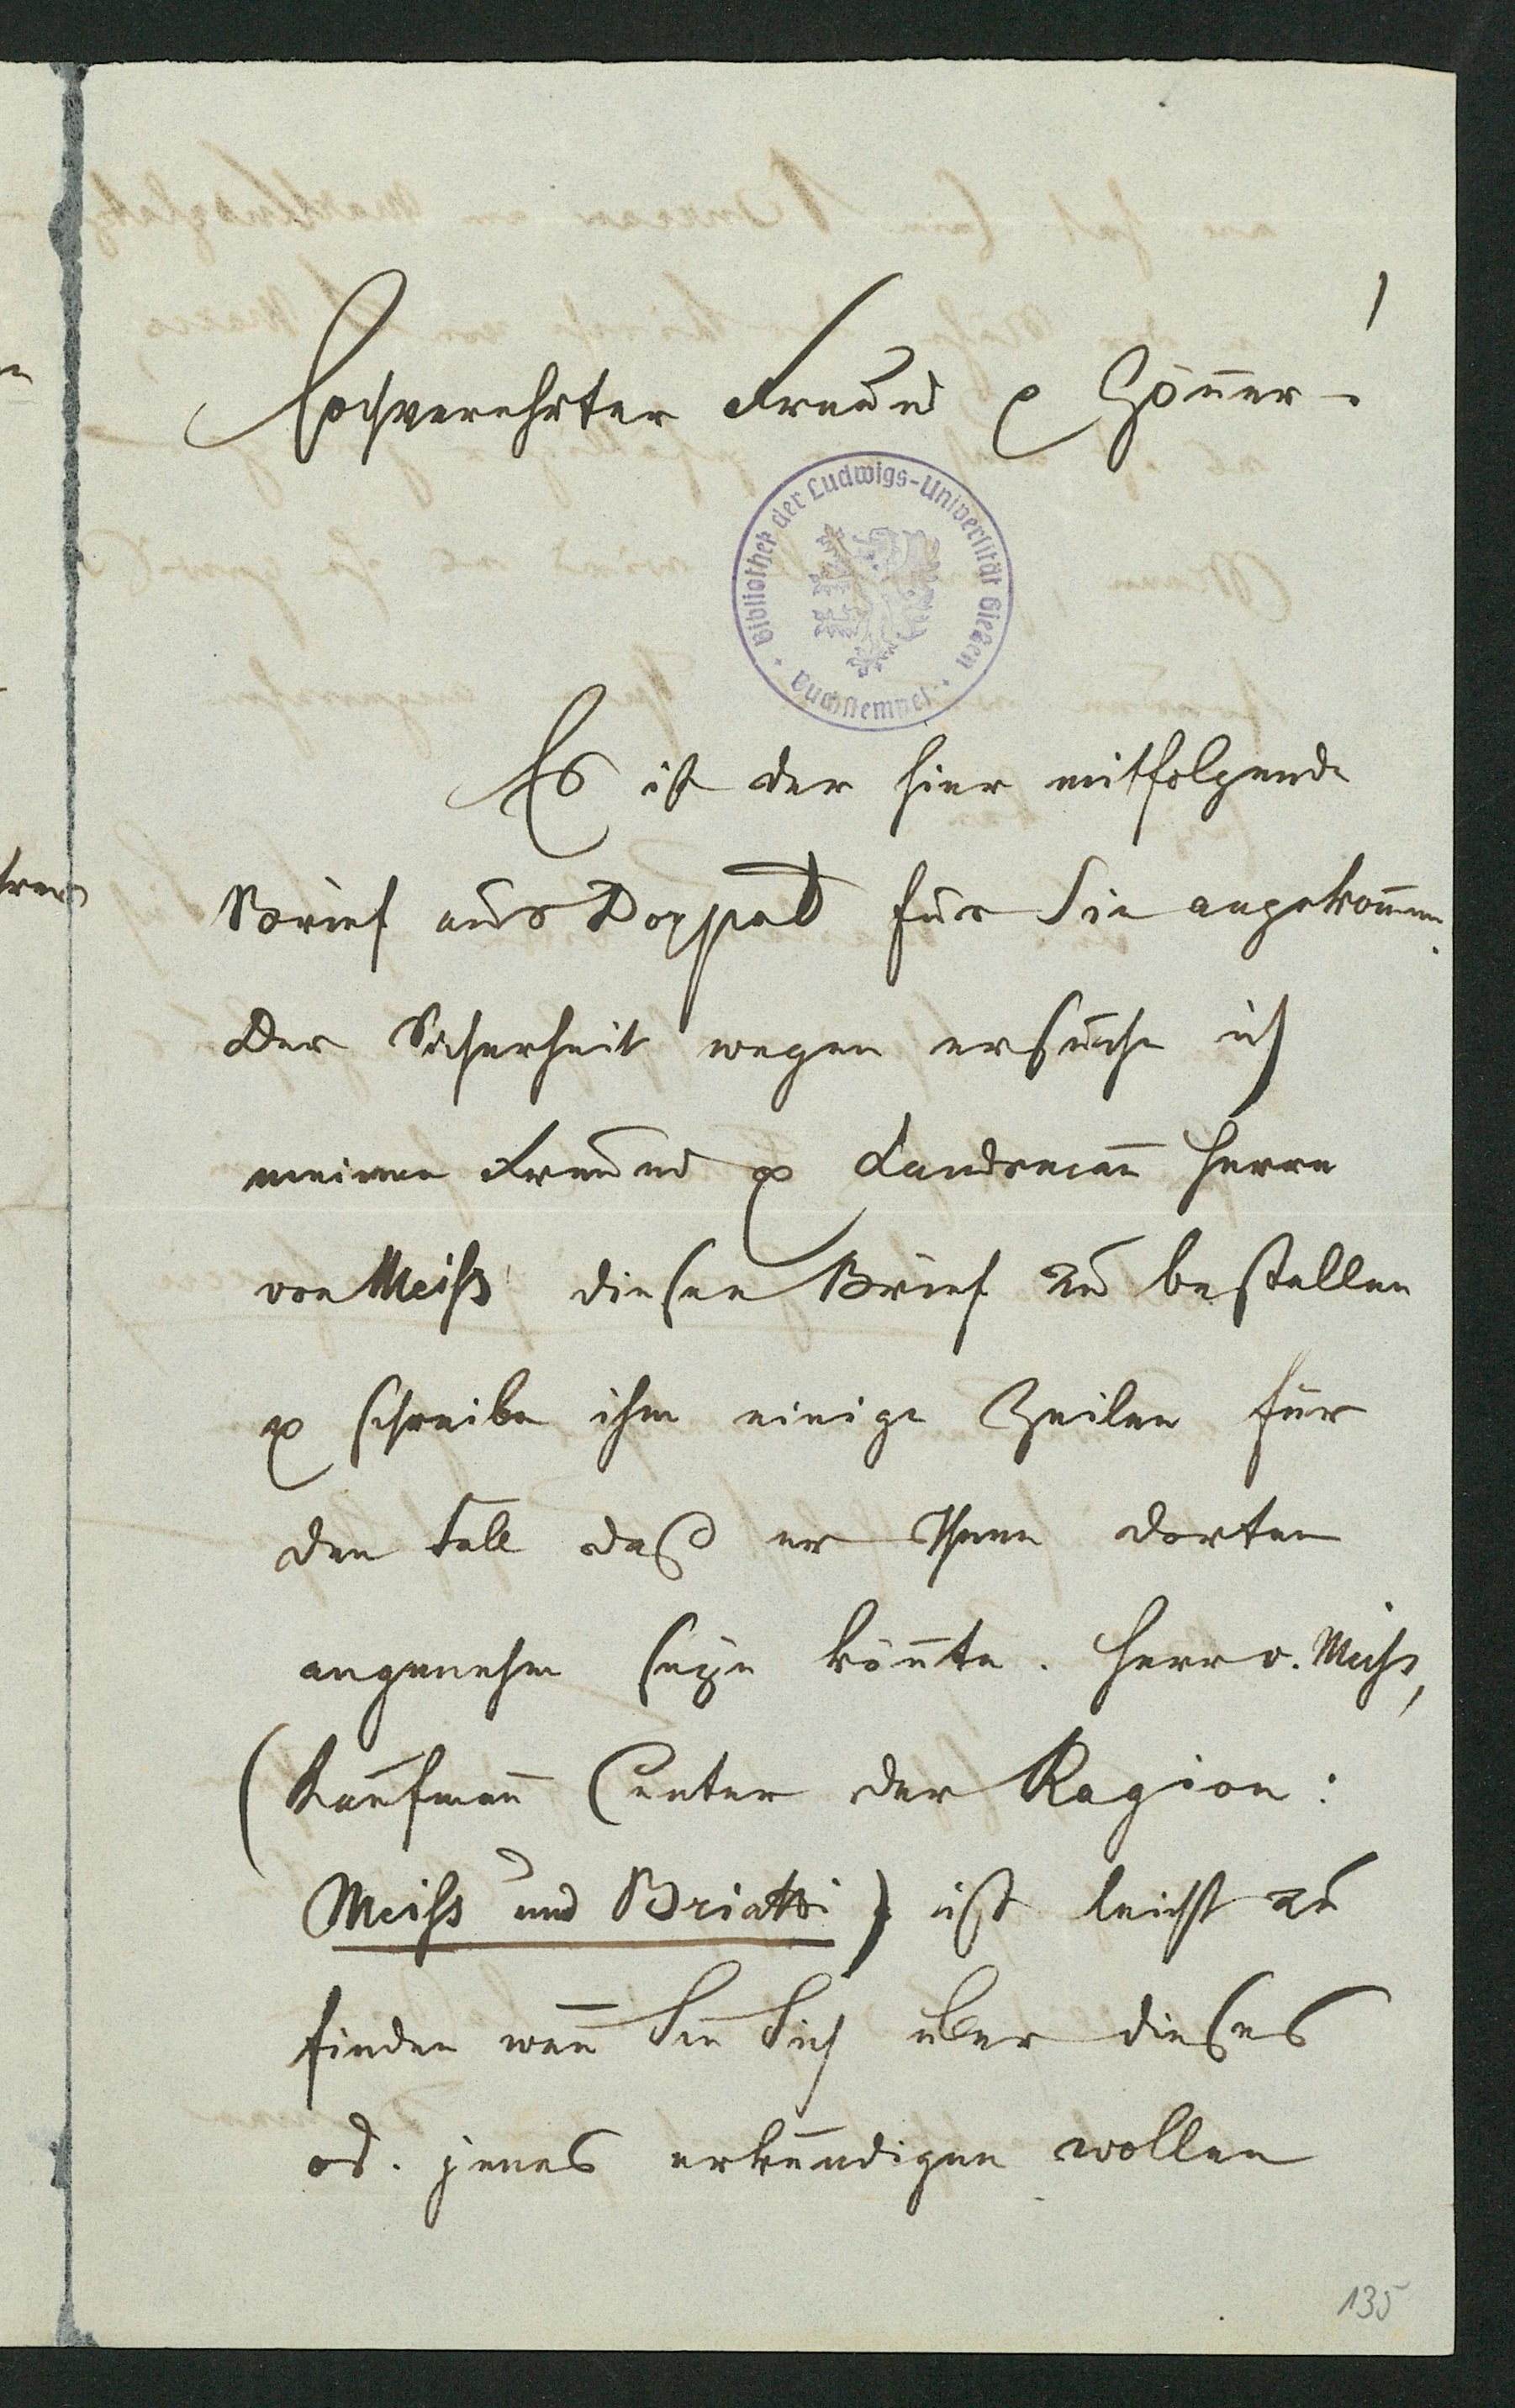 Hochverehrter Freund & Gönner!
Bibliothek der Ludwigs-Universität Gießen
Buchstempel
Es ist der hier mitfolgende
Brief aus Doppad für Sie angekommen.
Der Sicherheit wegen ersuche ich
meinen Freund & Landsmann Herrn
von Meiss diesen Brief zu bestellen
& schreibe ihm einige Zeilen für
den Fall daß er Ihnen dorten
angenehm seyn könnte. Herr v. Meiss,
(Kaufmann (unter der Ragion:
Meiss und Briatti) ist leicht zu
finden wenn Sie Sich über dieses
od. jenes erkundigen wollen
135